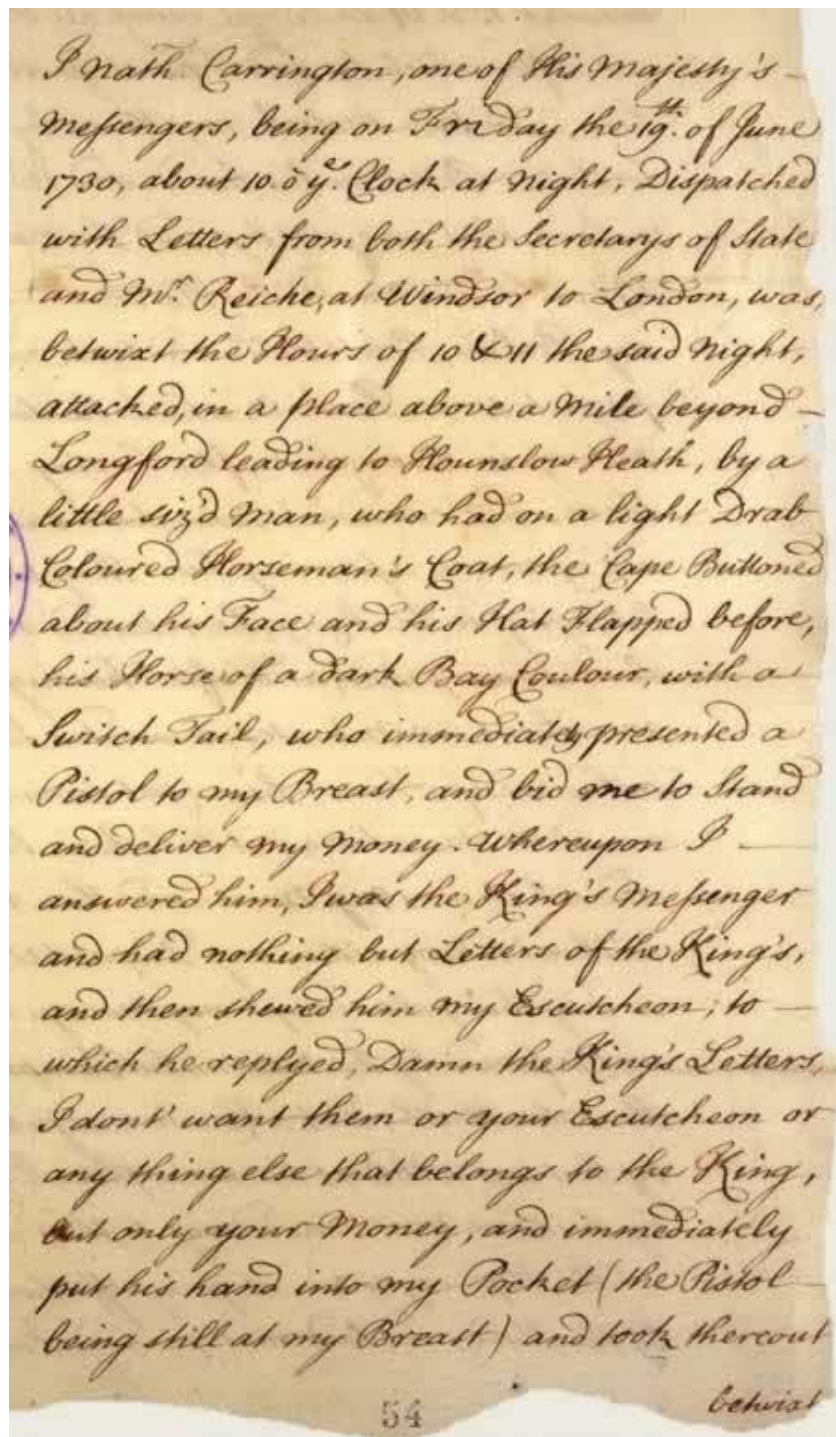 I Nath. Carrington, one of His Majesty's –
Messengers, being on Friday the 19th. of June
1730, about 10. ō ye. Clock at Night, Dispatched
with Letters from both the Secretarys of State
and Mr. Reiche, at Windsor to London, was,
betwixt the Hours of 10 & 11 the said Night,
attacked, in a place above a Mile beyond –
Longford leading to Hounslow Heath, by a
little siz'd Man, who had on a light Drab
Coloured Horseman's Coat, the Cape Buttoned
about his Face and his Hat Flapped before,
his Horse of a dark Bay Coulour, with a
Switch Tail, who immediately presented a
Pistol to my Breast, and bid me to Stand
and deliver my Money. Whereupon I —
answered him, I was the King's Messenger
and had nothing but Letters of the King's,
and then shewed him my Escutcheon; to —
which he replyed, Damn the King's Letters,
I dont' want them or your Escutcheon or
any thing else that belongs to the King,
but only your Money, and immediately
put his hand into my Pocket (the Pistol
being still at my Breast) and took thereout
betwixt
54